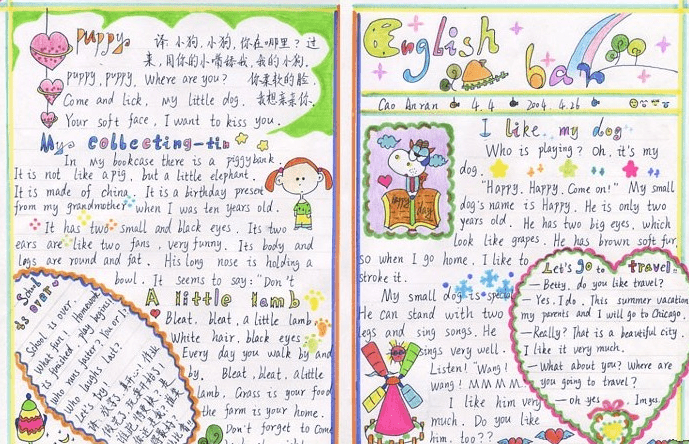 puppy
译: 小狗,小狗,你在哪里? 过
来,用你的小嘴舔我,我的小狗.
puppy, puppy, Where are you? 你柔软的脸,
Come and lick, my little dog. 我想亲亲你.
Your soft face, I want to kiss you.
My collecting-tin
In my bookcase there is a piggybank.
It is not like a pig, but a little elephant.
It is made of china. It is a birthday present
from my grandmother when I was ten years old.
It has two small and black eyes. Its two
ears are like two fans, very funny. Its body and
legs are round and fat. His long nose is holding a
bowl. It seems to say: "Don't
School is over.
School is over.
What fun! Homework
is finished, play begins!
Who runs faster? You or I?
Who laugh last?
Let's try.
A little lamb
Bleat. bleat, a little lamb
White hair, black eyes.
Every day you walk by and
by. Bleat, bleat, a little
lamb, Grass is your food
the farm is your home.
Don't forget to come
English bar
Cao Anran 4.4 2004.4.26
I like my dog
Who is playing? Oh, it's my
dog.
"Happy. Happy. Come on!" My small
dog's name is Happy. He is only two
years old. He has two big eyes, which
look like grapes. He has brown soft fur,
so when I go home, I like to
stroke it.
My small dog is special
He can stand with two
legs and sing songs. He
sings very well.
Listen! "Wang!
wang! MMMM
I like him very
much. Do you like
him, too??
Happy day
Let's go to travel.
— Betty, do you like travel?
— Yes, I do. This summer vacation,
my parents and I will go to Chicago.
— Really? That is a beautiful city.
I like it very much.
— What about you? Where are
you going to travel?
— Oh yes